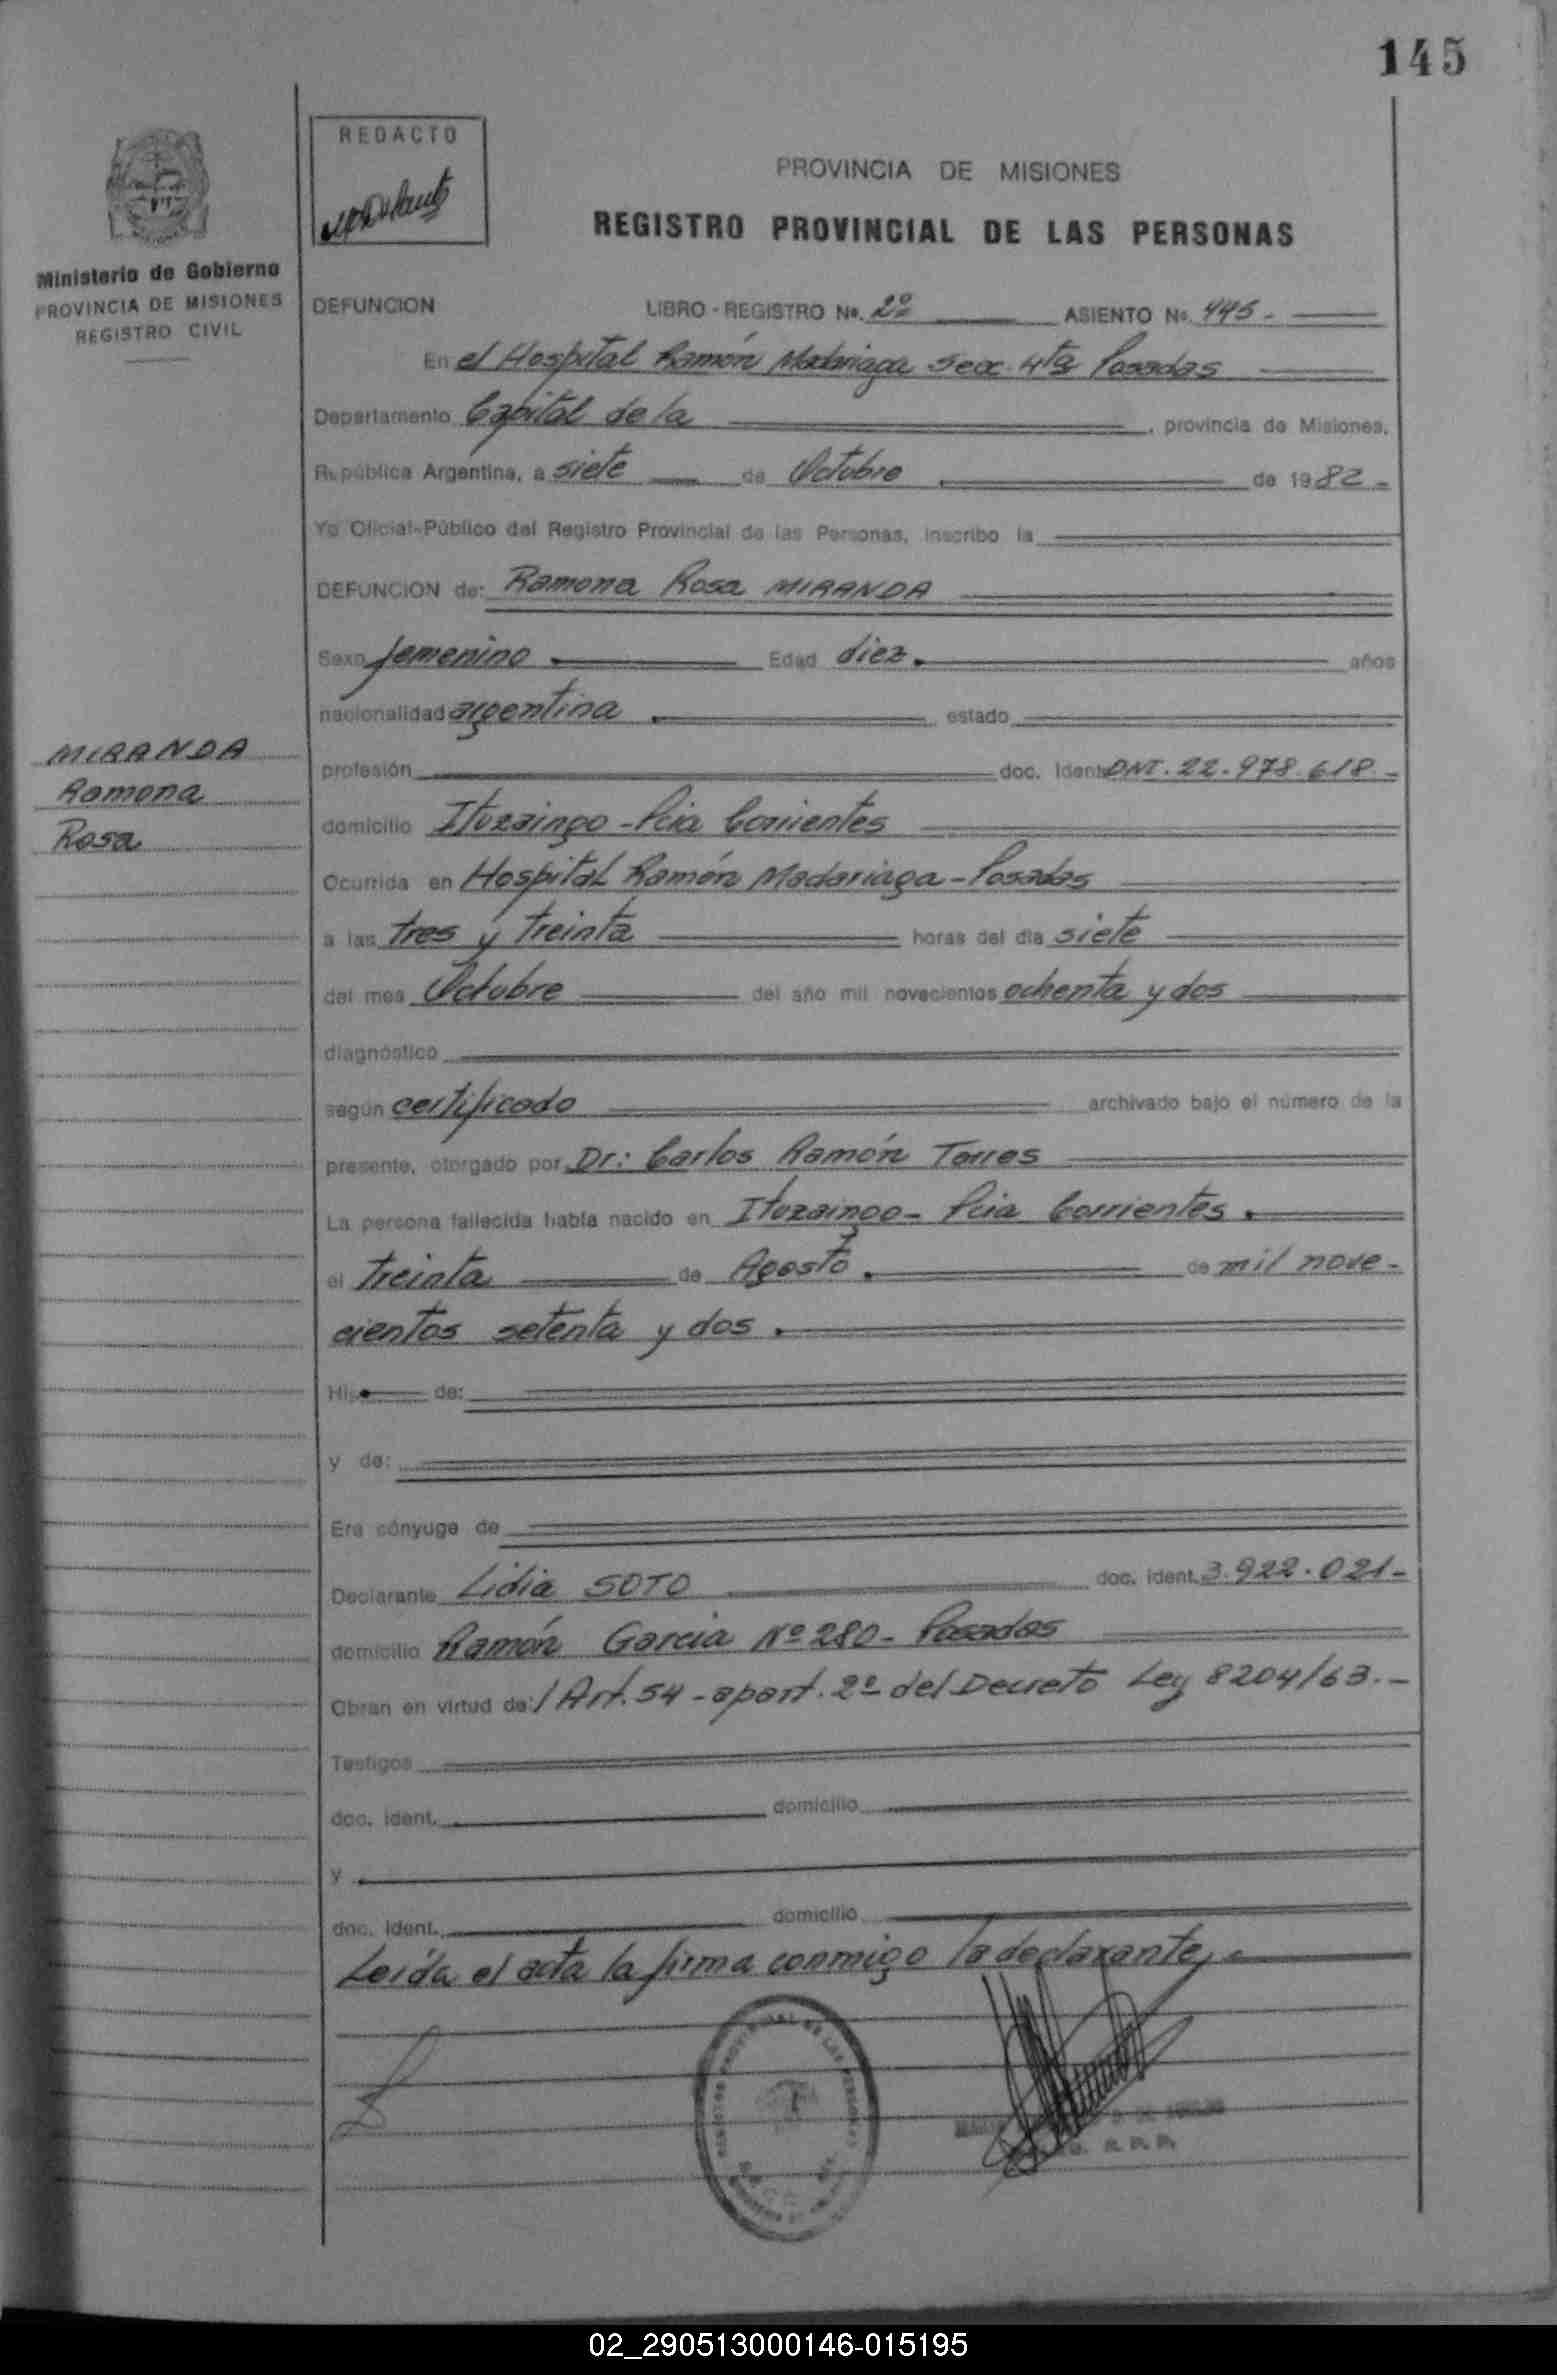 145
REDACTO
PROVINCIA DE MISIONES
REGISTRO PROVINCIAL DE LAS PERSONAS
Ministerio de Gobierno
PROVINCIA DE MISIONES
REGISTRO CIVIL
DEFUNCION LIBRO - REGISTRO No. 2º ASIENTO No. 445.-
En el Hospital Ramón Madariaga Secc. 4ta Posadas
Departamento Capital de la , provincia de Misiones,
República Argentina, a siete de Octubre de 1982-
Yo Oficial-Público del Registro Provincial de las Personas, inscribo la
DEFUNCION de: Ramona Rosa MIRANDA
Sexo femenino. Edad diez. años
nacionalidad argentina. estado
MIRANDA
Ramona
Rosa
profesión doc. Ident. DNI. 22.978.618.-
domicilio Ituzaingo - Pcia Corrientes
Ocurrida en Hospital Ramón Madariaga - Posadas
a las tres y treinta horas del día siete
del mes Octubre del año mil novecientos ochenta y dos
diagnóstico
según certificado archivado bajo el número de la
presente, otorgado por Dr: Carlos Ramón Torres
La persona fallecida había nacido en Ituzaingo - Pcia Corrientes.
el treinta de Agosto. de mil nove-
cientos setenta y dos.
Hij de:
y de:
Era cónyuge de
Declarante Lidia SOTO doc. ident. 3.922.021-
domicilio Ramón Garcia Nº 280 - Posadas
Obran en virtud de:/ Art. 54 - apart. 2º del Decreto Ley 8204/63.-
Testigos
doc. ident. domicilio
y
doc. ident. domicilio
Leída el acta la firma conmigo la declarante.
02_290513000146-015195